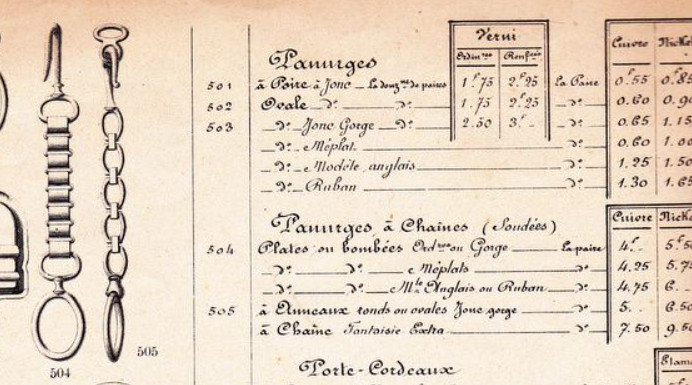 Verni
Cuivre Nickel
Panurges
Ordin.res Renf.cés
501 à Poire à Jonc _ La douz.ne de paires 1.f75 2.f25 La Paire 0.f55 0.f85
502 Ovale _d°_ _d°_ 1.75 2.f25 _d°_ 0.60 0.90
503 _d°_ Jonc Gorge _d°_ 2.50 3.f_ _d°_ 0.65 1.15
_d°_ Méplat d°_ 0.60 1.00
_d°_ Modèle anglais d°_ 1.25 1.50
_d°_ Ruban d°_ 1.30 1.65
Panurges à Chaînes (Soudées) Cuivre Nickel
504 Plates ou bombées Ord.res ou Gorge La paire 4.f_ 5.f50
_d°_ _d°_ Méplats d° 4.25 5.75
_d°_ _d°_ M.le Anglais ou Ruban d° 4.75 6._
505 à Anneaux ronds ou ovales Jonc gorge d° 5._ 6.50
à Chaîne Fantaisie Extra d° 7.50 9.50
504
505
Porte-Cordeaux